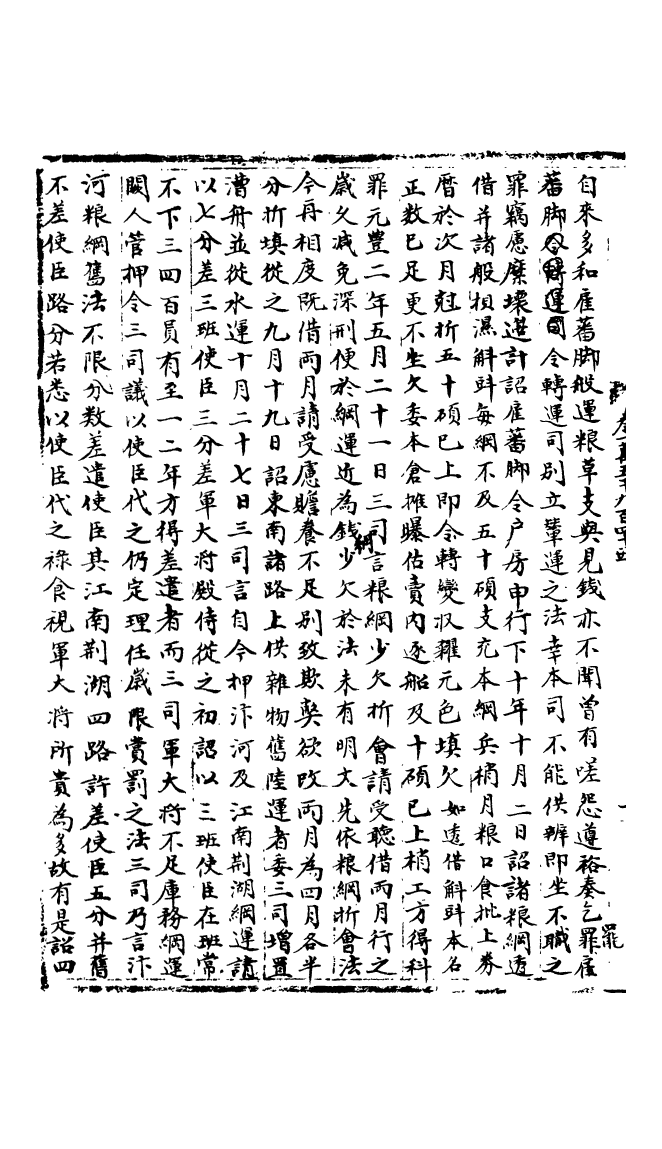 自來多和雇蕃脚般運粮草支與見錢亦不聞曾有嗟怨遵裕奏乞罪雇
蕃脚令轉運司令轉運司别立輦運之法幸本司不能供辨即坐不職之
罪竊慮縻壞邊計詔雇蕃脚令户房申行下十年十月二日詔諸粮綱透
借并諸般損濕斛㪷每綱不及五十碩支充本綱兵梢月粮口食批上券
曆於次月尅折五十碩已上即令轉變収糴元色填欠如透借斛㪷本名
正数已足更不生欠委本倉攤曝估賣内逐船及十碩已上梢工方得科
罪元豐二年五月二十一日三司言粮綱少欠折會請受聴借兩月行之
歲久减免深刑便於綱運近為錢綱少欠於法未有明文先依粮綱折會法
今再相度既借兩月請受慮贍養不足别致欺弊欲改兩月為四月各半
分折填從之九月十九日詔東南諸路上供雜物舊陸運者委三司增置
漕舟並從水運十月二十七日三司言自今押汴河及江南荆湖綱運請
以七分差三班使臣三分差軍大将殿侍從之初詔以三班使臣在班常
不下三四百員有至一二年方得差遣者而三司軍大将不足庫務綱運
闕人管押令三司議以使臣代之仍定理任歲限賞罰之法三司乃言汴
河粮綱舊法不限分数差遣使臣其江南荆湖四路許差使臣五分并舊
不差使臣路分若悉以使臣代之祿食視軍大将所費為多故有是詔四
卷一萬五千九百四十五
罷